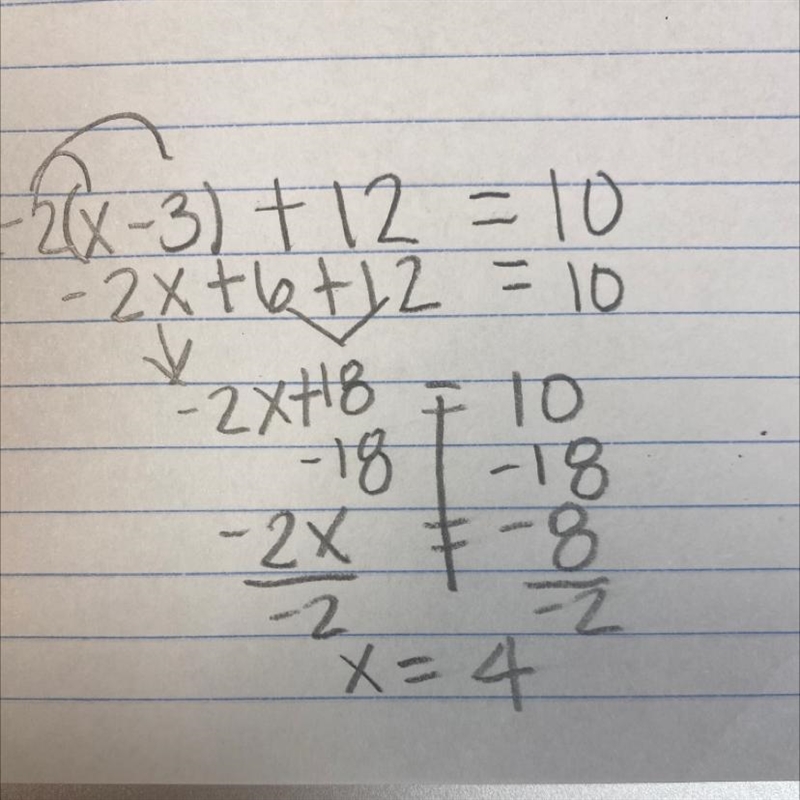 -2(x-3) + 12 = 10
-2x+6+12 = 10
-2x+18 = 10
-18 -18
-2x = -8
-2 -2
x = 4